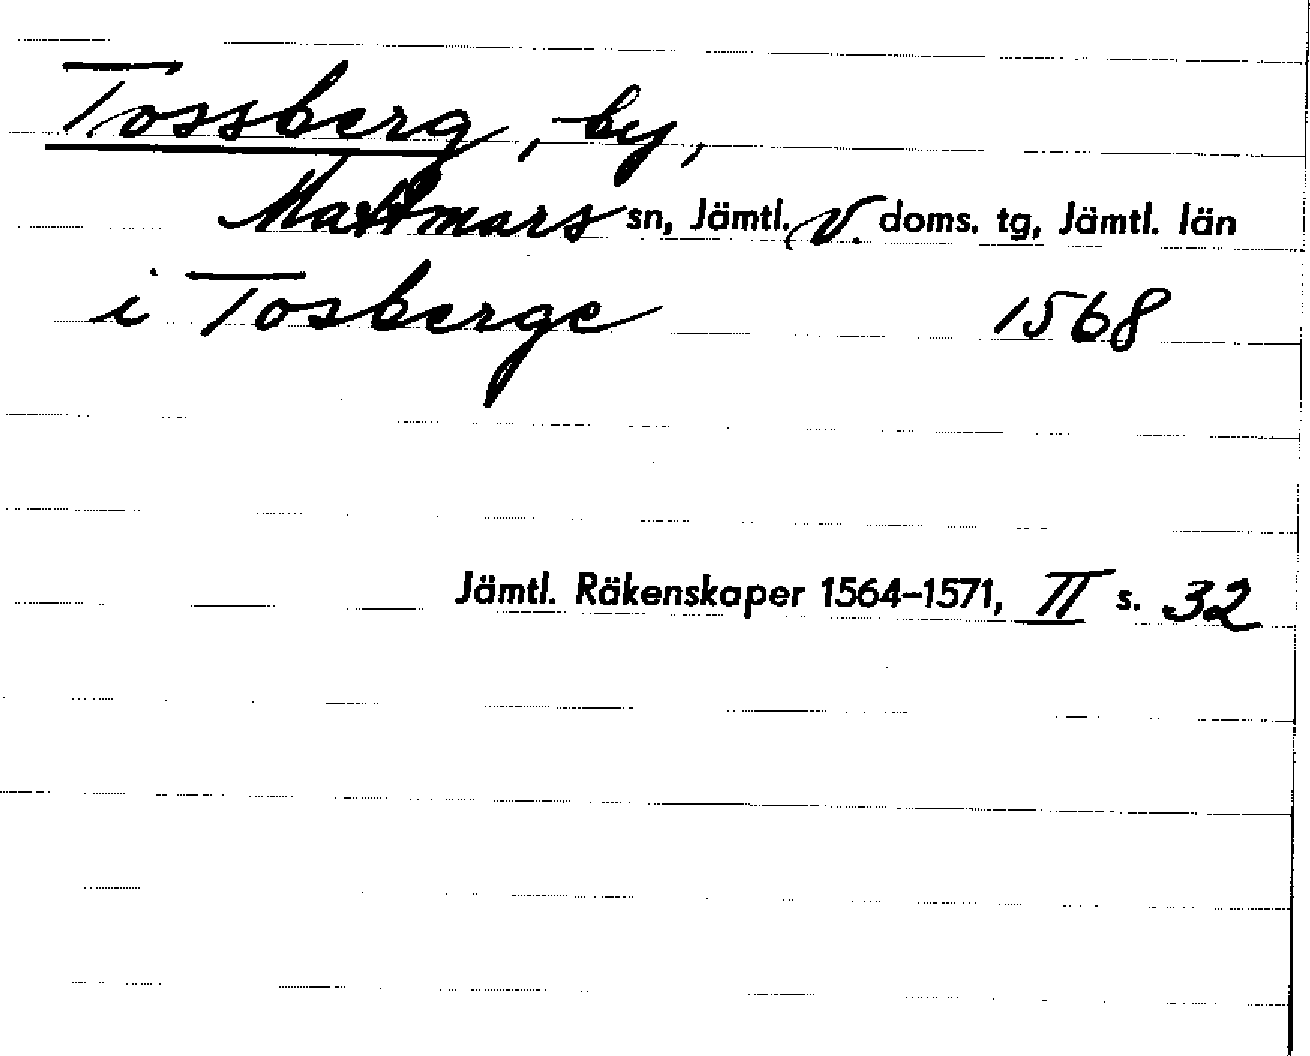 Tossberg, by,
Mattmars sn, Jämtl. v. doms. tg, Jämtl. län
i Tosberge 1568
Jämtl. Räkenskaper 1564-1571, II s. 32